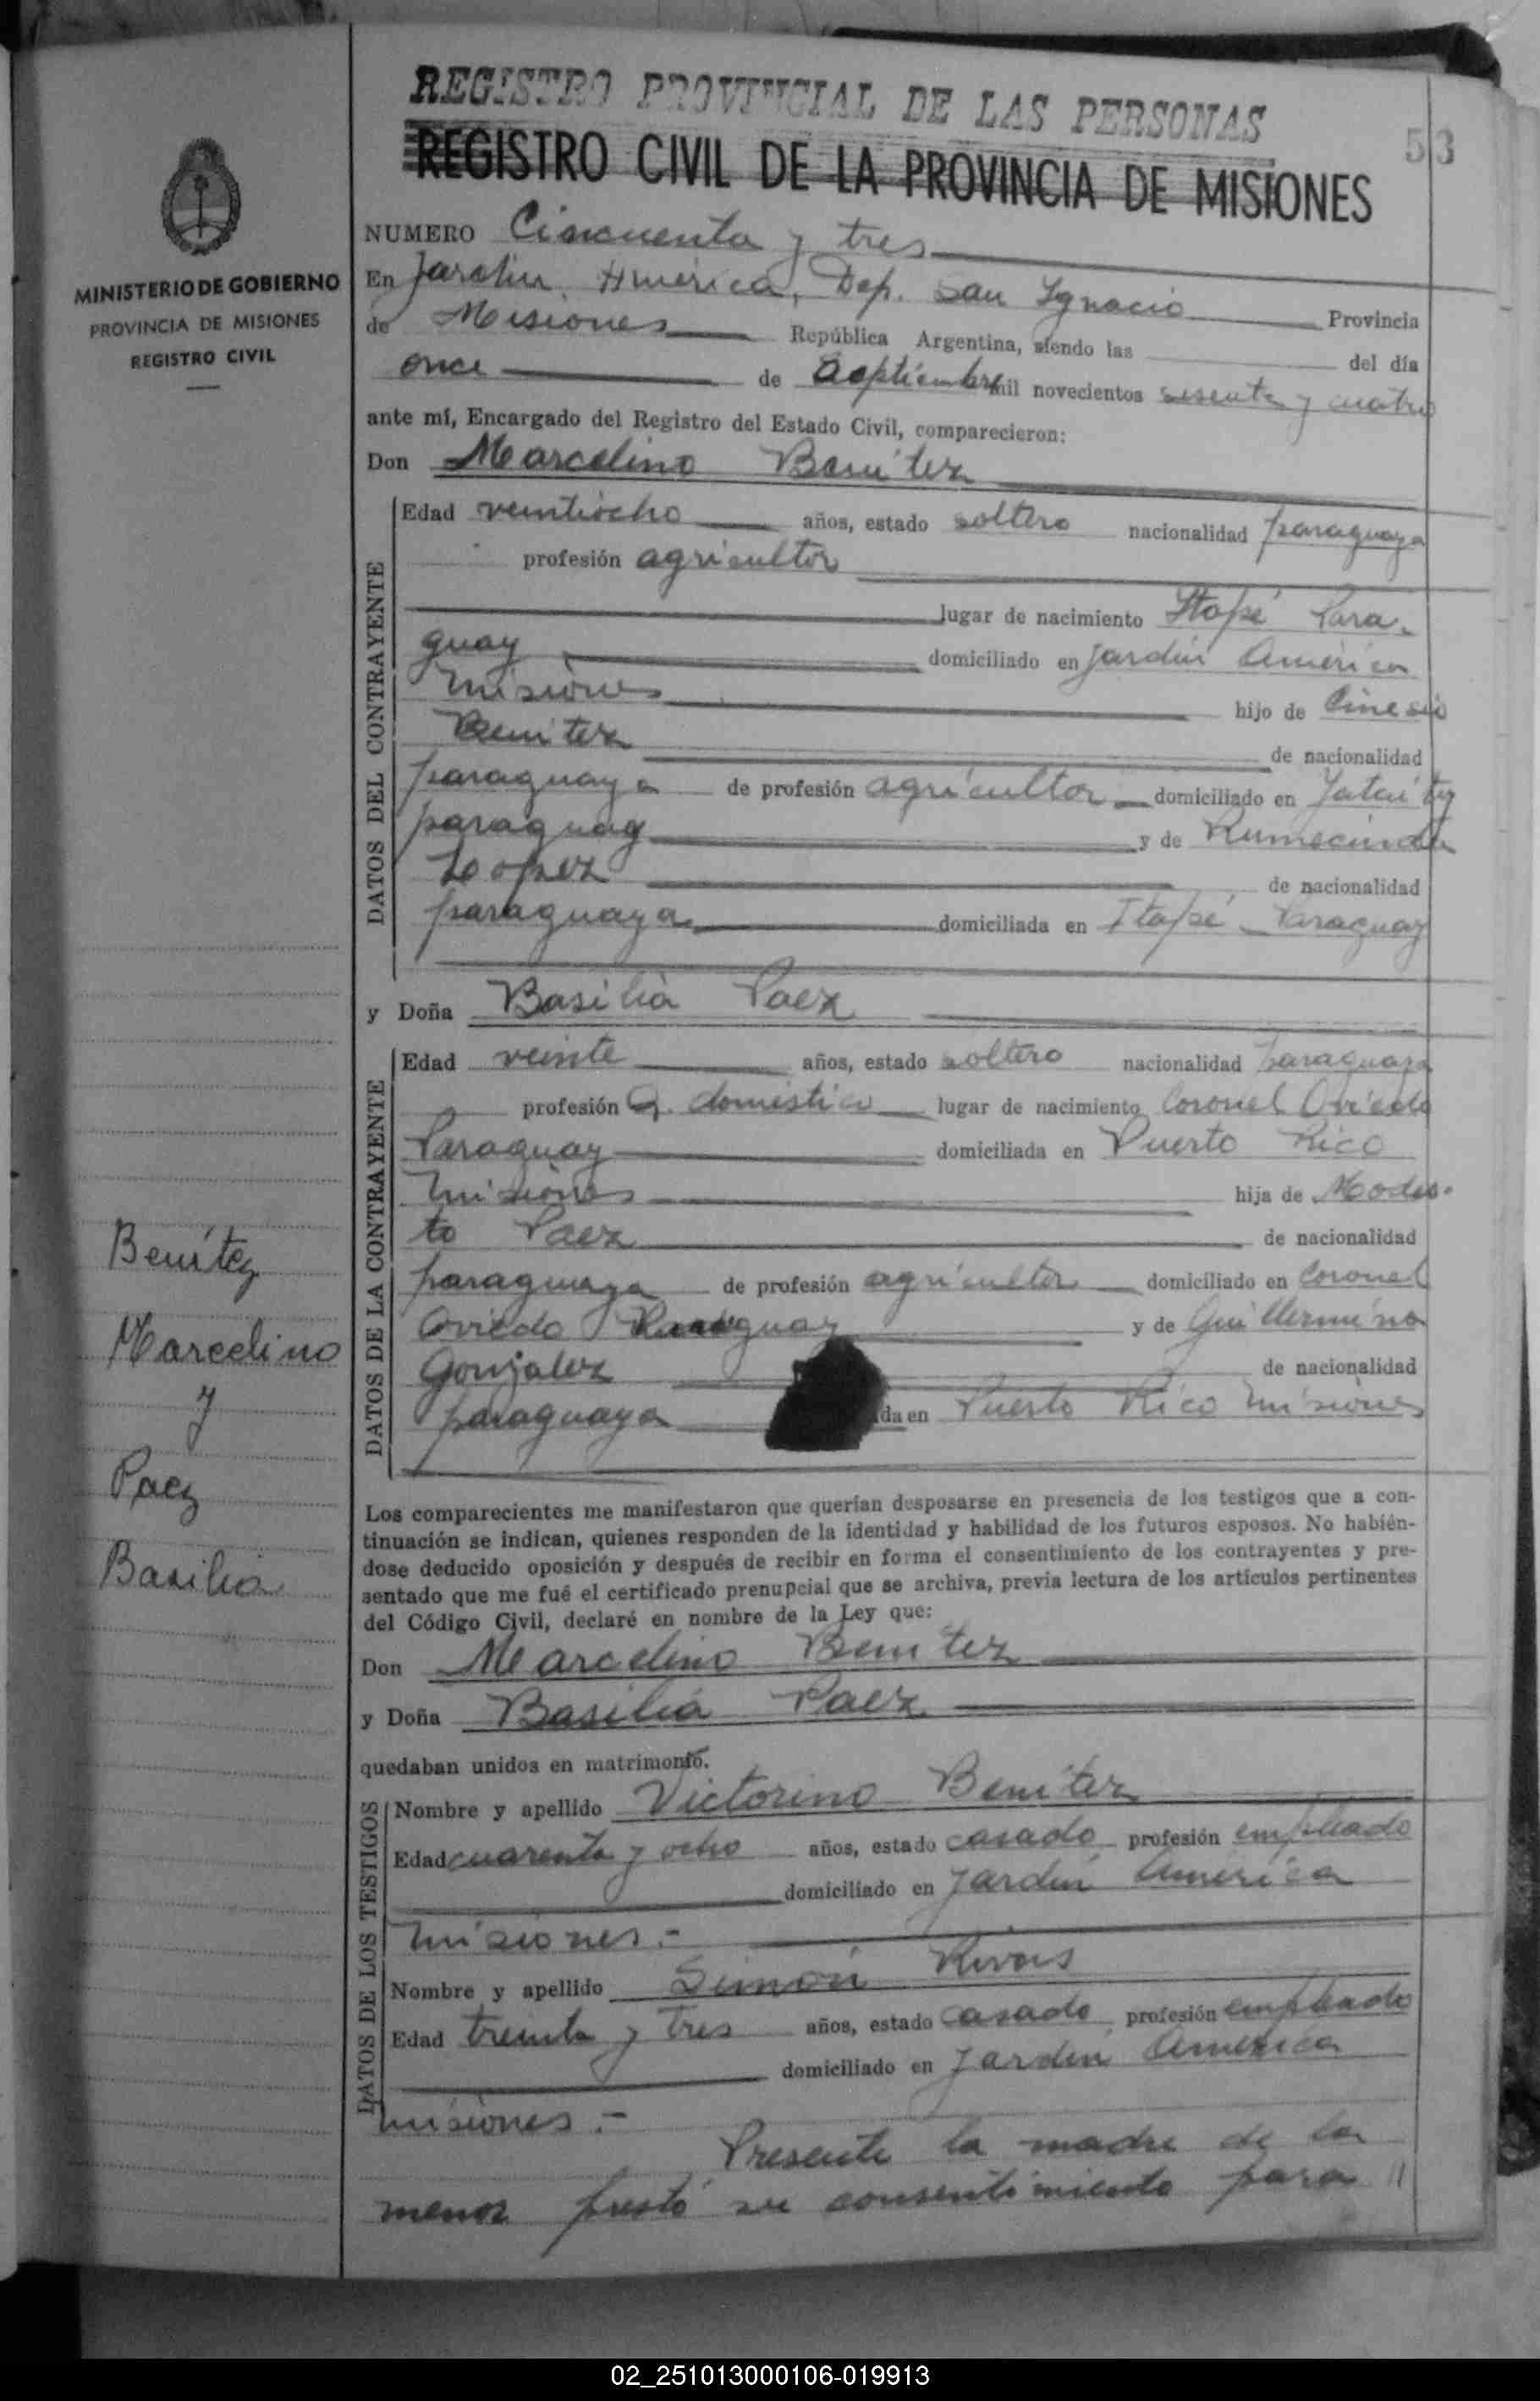 REGISTRO PROVINCIAL DE LAS PERSONAS
REGISTRO CIVIL DE LA PROVINCIA DE MISIONES
53
MINISTERIO DE GOBIERNO
PROVINCIA DE MISIONES
REGISTRO CIVIL
NUMERO Cincuenta y tres
En Jardín América, Dep. San Ignacio Provincia
de Misiones República Argentina, siendo las del día
once de Septiembre mil novecientos sesenta y cuatro
ante mí, Encargado del Registro del Estado Civil, comparecieron:
Don Marcelino Benitez
DATOS DEL CONTRAYENTE
Edad veintiocho años, estado soltero nacionalidad paraguaya
profesión agricultor
lugar de nacimiento Itapé Para-
guay domiciliado en Jardín América
Misiones hijo de
Benitez de nacionalidad
paraguaya de profesión agricultor domiciliado en
paraguay y de
Lopez de nacionalidad
paraguaya domiciliada en Itapé Paraguay
y Doña Basilia Paez
DATOS DE LA CONTRAYENTE
Edad veinte años, estado soltero nacionalidad paraguaya
profesión Q. domestico lugar de nacimiento Coronel Oviedo
Paraguay domiciliada en Puerto Rico
Misiones hija de Modes-
to Paez de nacionalidad
paraguaya de profesión agricultor domiciliado en Coronel
Oviedo Paraguay y de Guillermina
Gonzalez de nacionalidad
paraguaya da en Puerto Rico Misiones
Benítez
Marcelino
y
Paez
Basilia
Los comparecientes me manifestaron que querían desposarse en presencia de los testigos que a con-
tinuación se indican, quienes responden de la identidad y habilidad de los futuros esposos. No habién-
dose deducido oposición y después de recibir en forma el consentimiento de los contrayentes y pre-
sentado que me fué el certificado prenupcial que se archiva, previa lectura de los artículos pertinentes
del Código Civil, declaré en nombre de la Ley que:
Don Marcelino Benitez
y Doña Basilia Paez
quedaban unidos en matrimonio.
DATOS DE LOS TESTIGOS
Nombre y apellido Victorino Benitez
Edad cuarenta y ocho años, estado casado profesión empleado
domiciliado en Jardín América
Misiones.-
Nombre y apellido Simón Rivas
Edad treinta y tres años, estado casado profesión empleado
domiciliado en Jardín América
Misiones.-
Presente la madre de la
menor prestó su consentimiento para //
02_251013000106-019913